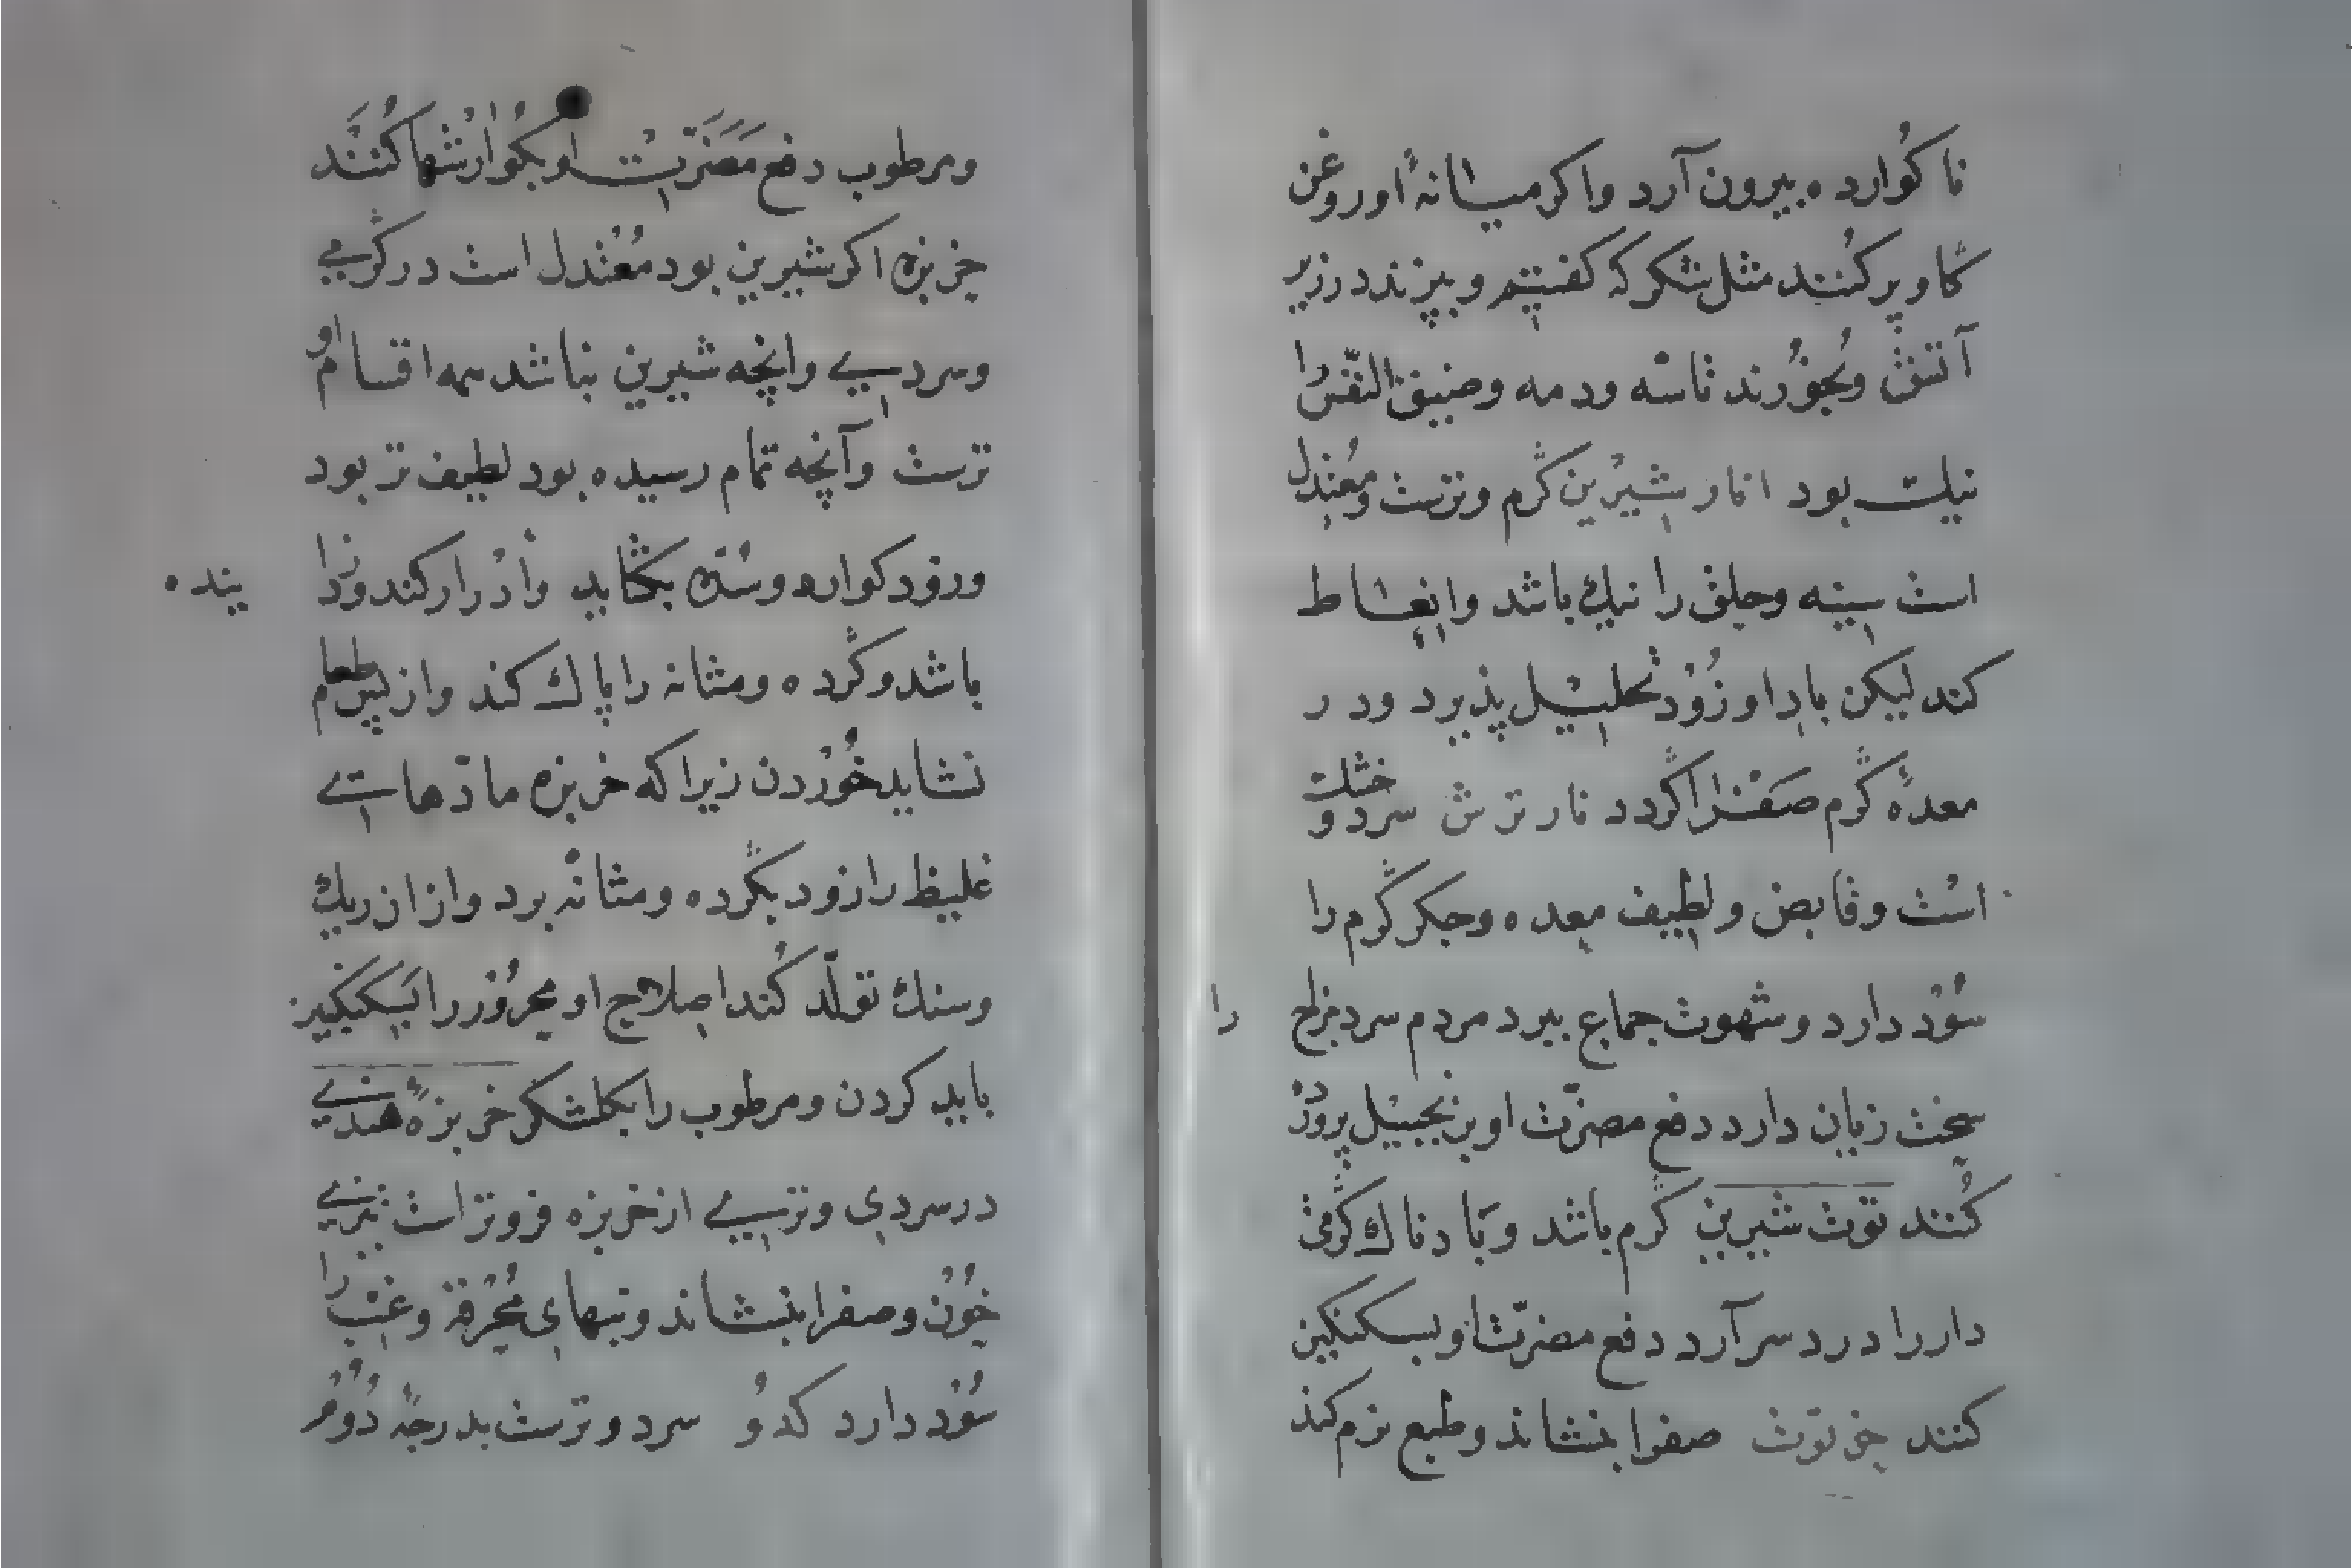 ناکوارده بیرون آرد واکر میانهٔ او روغن
کاو پر کنند مثل شکر که کفتیم و بپزند در زیر
آتش و بخورند تاسه ودمه وضیق النفس را
نیک بود انار شیرین کرم وترست ومعتدل
است سینه وحلق را نیک باشد وانعاط
کند لیکن باد او زود تحلیل پذیرد ودر
معدهٔ کرم صفرا کردد نار ترش سرد و خشک
است وقابض ولطیف معده وجکر کرم را
سود دارد وشهوت جماع ببرد مردم سرد مزاج را
سخت زیان دارد دفع مضرّت او بزنجبیل پرورد
کنند توث شیرین کرم باشد وباد ناک کرمی
دار را درد سر آرد دفع مضرّت او بسکنکبین
کنند خر توث صفرا بنشاند وطبع نرم کند
ومرطوب دفع مضرّت او بکوارشها کنند
خربزه اکر شیرین بود معتدل است در کرمی
وسردیی وانچه شیرین نباشد همه اقسام او
ترست وآنچه تمام رسیده بود لطیف تر بود
وزود کوارد وسدّه بکشاید وادرار کند وزداینده
باشد وکرده ومثانه را پاک کند واز پس طعام
نشاید خوردن زیرا که خربزه مادّهاتی
غلیظ را زود بکرده ومثانه برد واز ان ریک
وسنک تولّد کند اصلاح او محرور را بسکنکبین
باید کردن ومرطوب را بکلشکر خربزهٔ هندی
در سردی وتریی از خربزه فروتر است تیزی
خون وصفرا بنشاند وتبهای محرقه وغب را
سود دارد کدو سرد وترست بدرجهٔ دوم